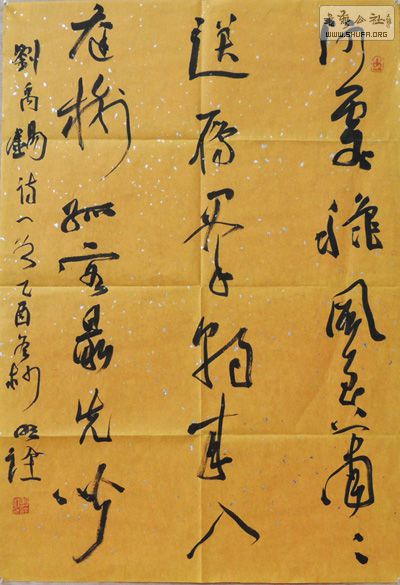 何處秋風至蕭々
送雁羣朝來入
庭樹孤客最先聞
劉禹錫詩一首乙酉冬杪
书法公社
WWW.SHUFA.ORG